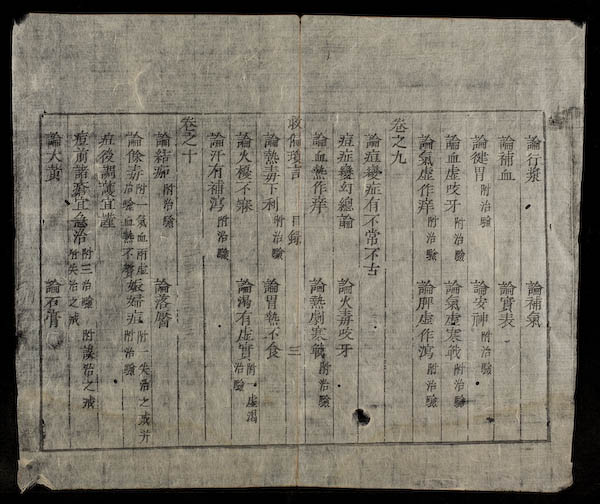 論行漿 論補氣
論補血 論實表
論健胃附治驗 論安神附治驗
論血虛咬牙附治驗 論氣虛寒戰附治驗
論氣虛作癢附治驗 論脾虛作瀉附治驗
卷之九
論痘變症有不常不古
痘症變幻總論 論火毒咬牙
論血熱作癢 論熱劇寒戰附治驗
救偏瑣言 目錄 三
論熱毒下利附治驗 論胃熱不食
論火擾不寐 論渴有虛實附一虛渴治驗
論汗有補瀉附治驗
卷之十
論結痂附治驗 論落靨
論餘毒附一氣血兩虛治驗血熱不 娠婦痘附一失治之戒并附治驗
痘後調護宜謹
痘前諸 宜急治附三治驗附失治之戒 附誤治之戒
論大黃 論石膏